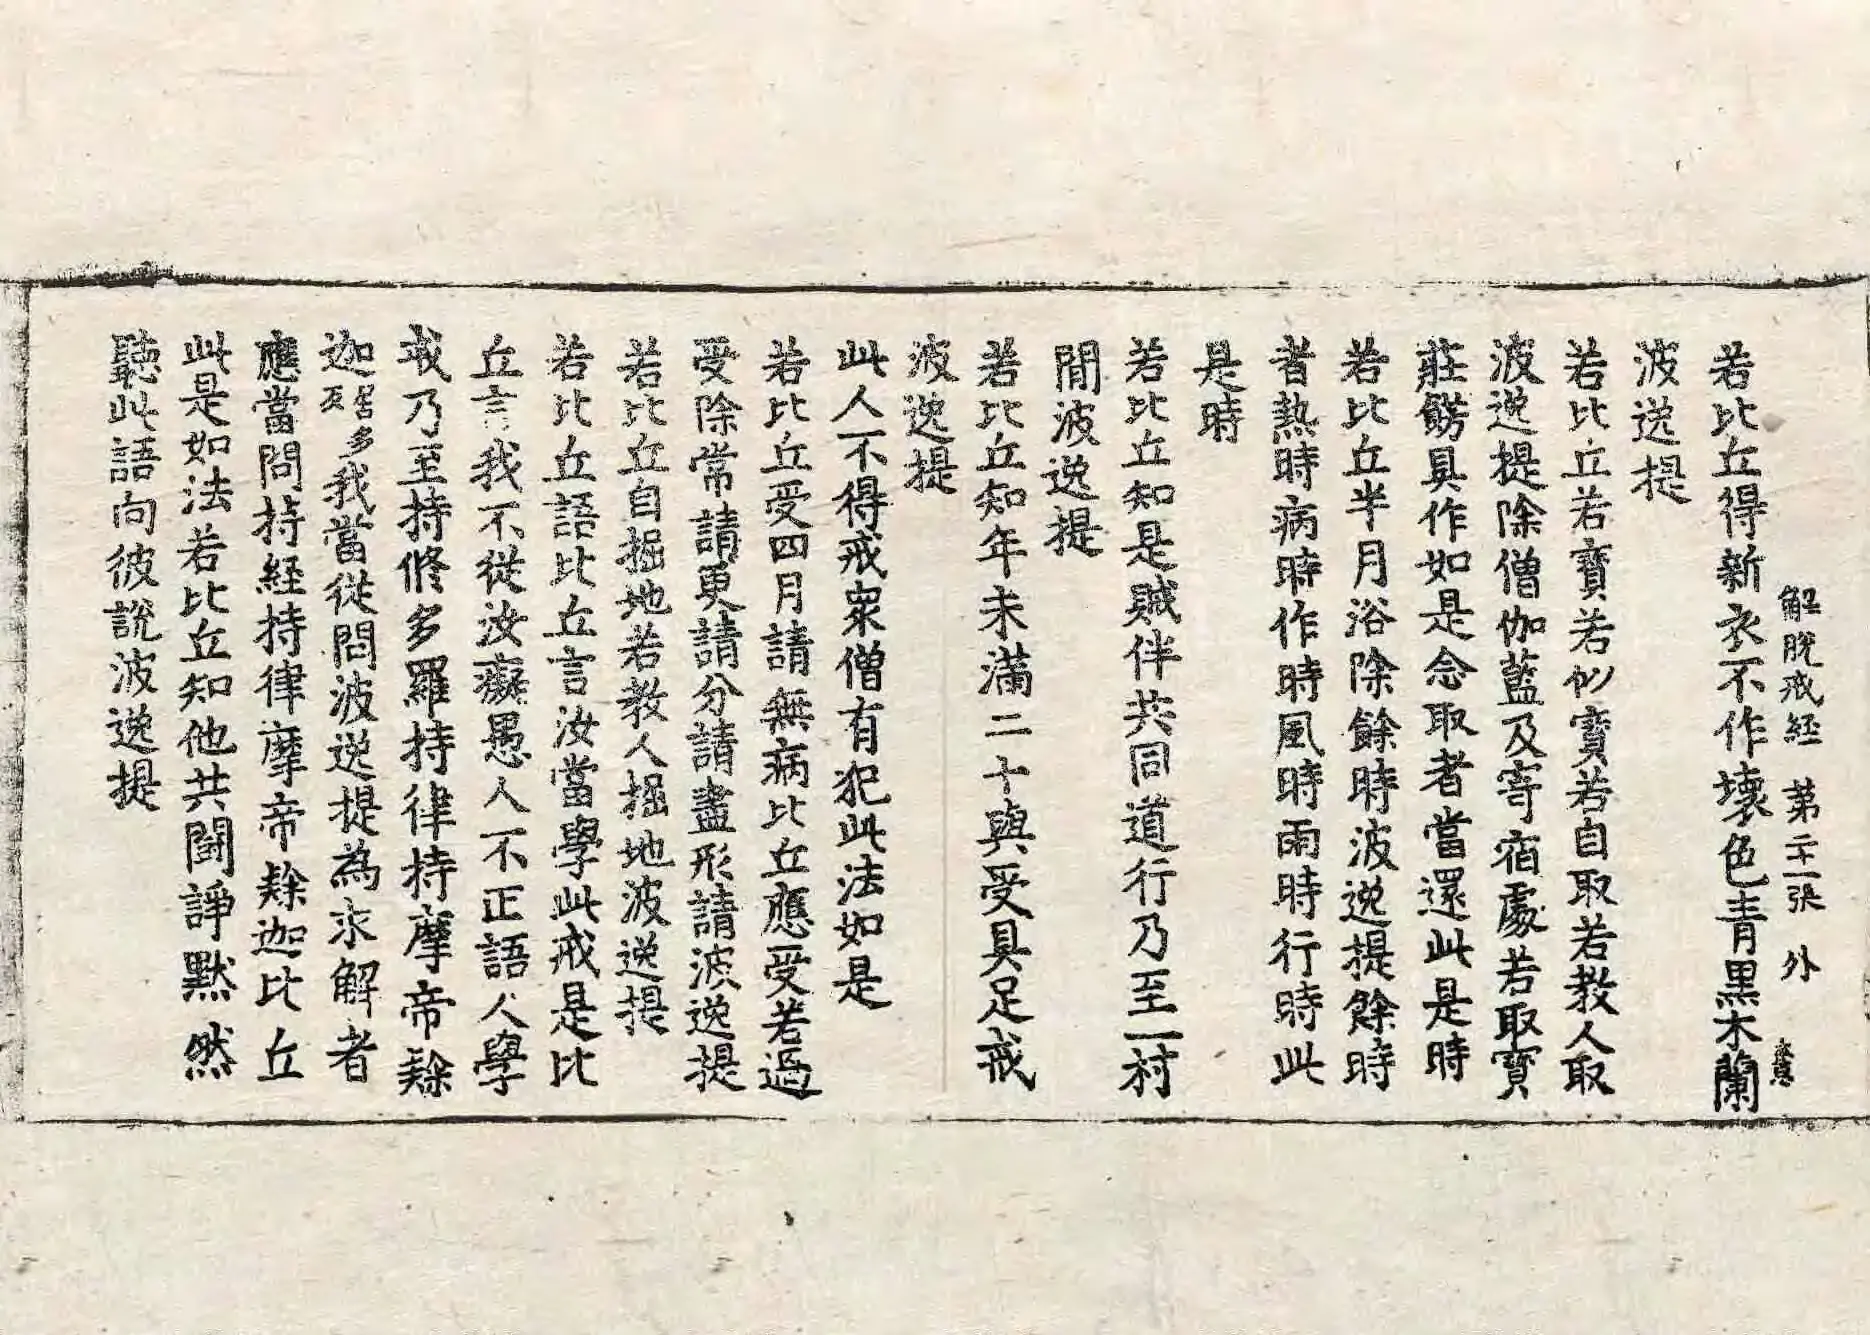 解脫戒経 第二十一張 外
若比丘得新衣不作壞色青黑木蘭
波逸提
若比丘若寶若似寶若自取若教人取
波逸提除僧伽藍及寄宿處若取寶
莊餝具作如是念取者當還此是時
若比丘半月浴除餘時波逸提餘時
者熱時病時作時風時雨時行時此
是時
若比丘知是賊伴共同道行乃至一村
間波逸提
若比丘知年未滿二十與受具足戒
波逸提
此人不得戒衆僧有犯此法如是
若比丘受四月請無病比丘應受若過
受除常請更請分請盡形請波逸提
若比丘自掘地若教人掘地波逸提
若比丘語比丘言汝當學此戒是比
丘言我不從汝癡愚人不正語人學
或乃至持修多羅持律持摩帝
迦 多我當從問波逸提為求解者
應當問持経持律摩帝 迦比丘
此是如法若比丘知他共鬪諍默然
聽此語向彼說波逸提